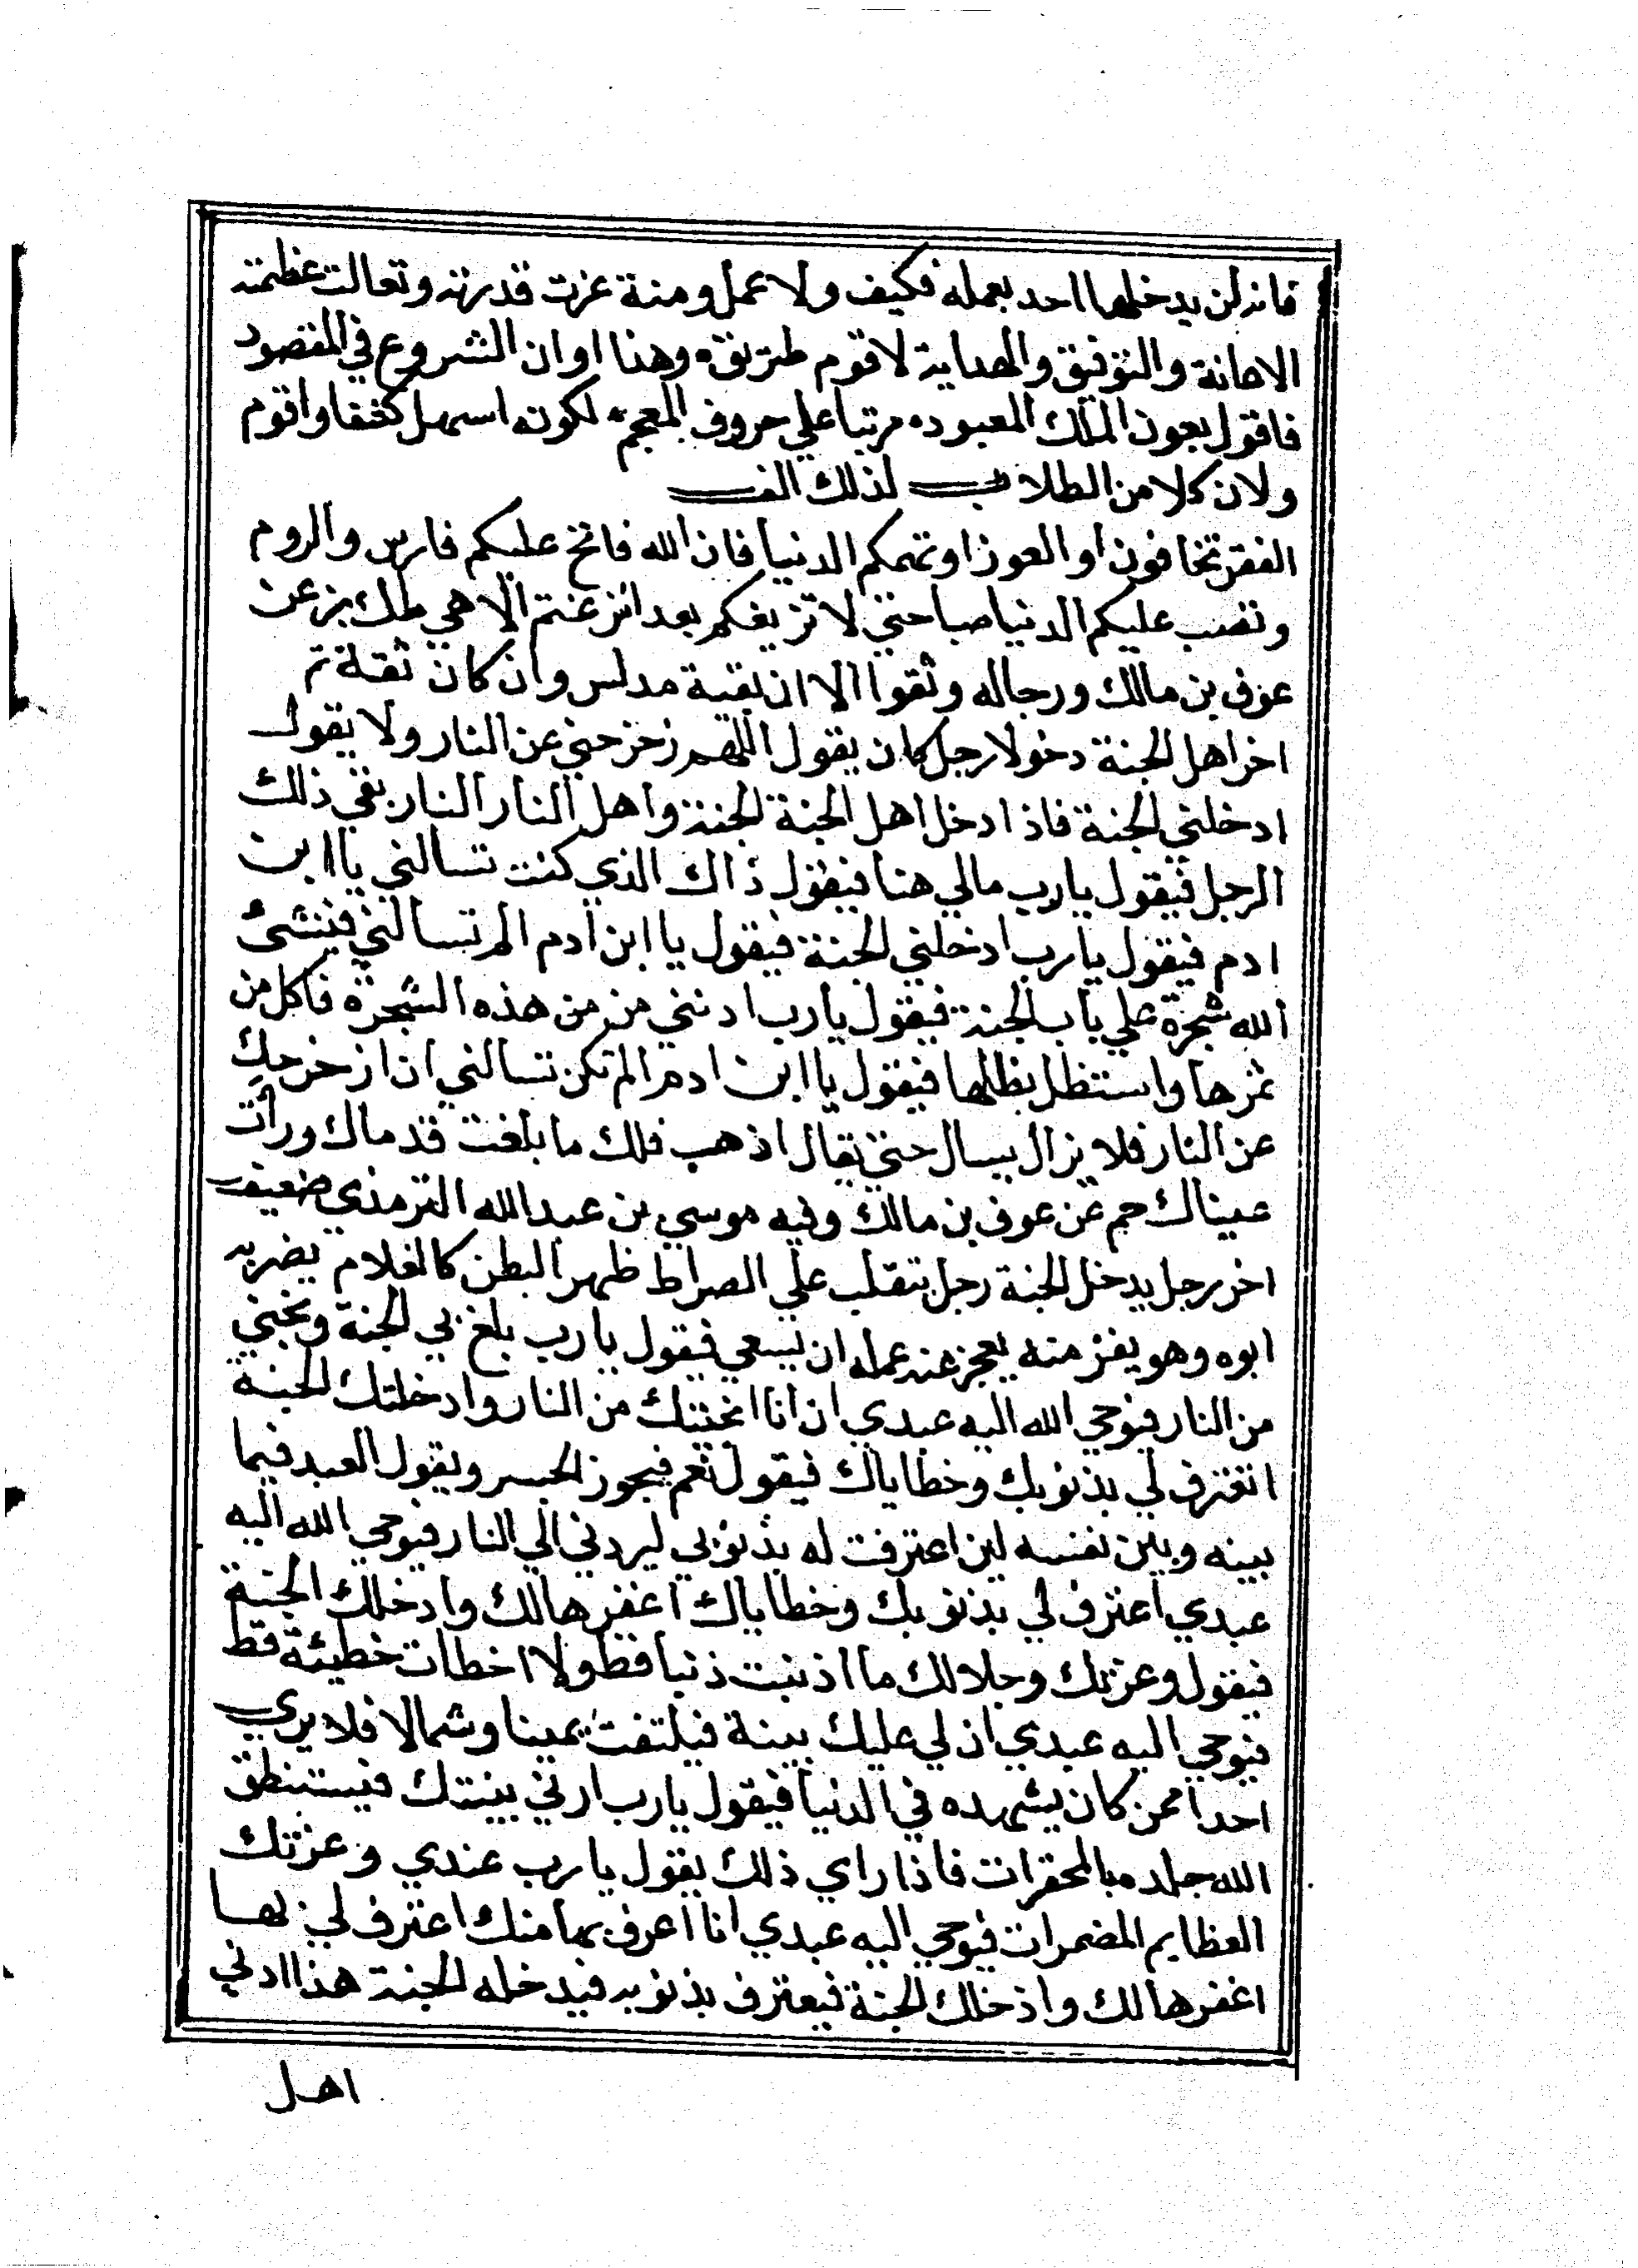 فانه لن يدخلها احد بعمله فكيف ولا عمل ومنة عزت قدرته وتعالت عظمته
الاعانة والتوفيق والهداية لاقوم طريق وهذا اوان الشروع في المقصود
فاقول بعون الملك المعبود مرتبا علي حروف المعجم لكونه اسهل كشفا واقوم
ولان كلا من الطلاب لذلك الف
الفقر تخافون او العوز او تهمكم الدنيا فان الله فاتح عليكم فارس والروم
وتصب عليكم الدنيا صبا حتي لا تزيغكم بعد ان زغتم الا هي طك بز عن
عوف بن مالك ورجاله وثقوا الا ان بقية مدلس وان كان ثقة تم
اخر اهل الجنة دخولا رجل كان يقول اللهم زحزحني عن النار ولا يقول
ادخلني الجنة فاذا دخل اهل الجنة الجنة واهل النار النار بقي ذلك
الرجل فيقول يا رب مالي هنا فيقول ذاك الذي كنت تسالني يا ابن
ادم فيقول يا رب ادخلني الجنة فيقول يا ابن ادم الم تسالني فينشئ
الله شجرة علي باب الجنة فيقول يا رب ادنني من من هذه الشجرة فاكل من
ثمرها واستظل بظلها فيقول يا ابن ادم الم تكن تسالني ان ازحزحك
عن النار فلا يزال يسال حتي يقال اذهب فلك ما بلغت قدماك ورأت
عيناك حم عن عوف بن مالك وفيه موسي بن عبد الله الترمذي ضعيف
اخر رجل يدخل الجنة رجل يتقلب علي الصراط ظهر البطن كالغلام يضربه
ابوه وهو يفر منه يعجز عنه عمله ان يسعي فيقول يا رب بلغ بي الجنة ونجني
من النار فيوحي الله اليه عبدي ان انا انجيتك من النار وادخلتك الجنة
اتعترف لي بذنوبك وخطاياك فيقول نعم فيجوز الجسر ويقول العبد فيما
بينه وبين نفسه لين اعترفت له بذنوبي ليردني الي النار فيوحي الله اليه
عبدي اعترف لي بذنوبك وخطاياك اغفرها لك وادخلك الجنة
فيقول وعزتك وجلالك ما اذنبت ذنبا قط ولا اخطات خطيئة قط
فيوحي اليه عبدي ان لي عليك بينة فيلتفت يمينا وشمالا فلا يري
احدا ممن كان يشهده في الدنيا فيقول يا رب ارني بينتك فيستنطق
الله جلده بالمحقرات فاذا راي ذلك يقول يا رب عندي وعزتك
العظايم المضمرات فيوحي اليه عبدي انا اعرف بها منك اعترف لي بها
اغفرها لك وادخلك الجنة فيعترف بذنوبه فيدخله الجنة هذا ادني
اهل